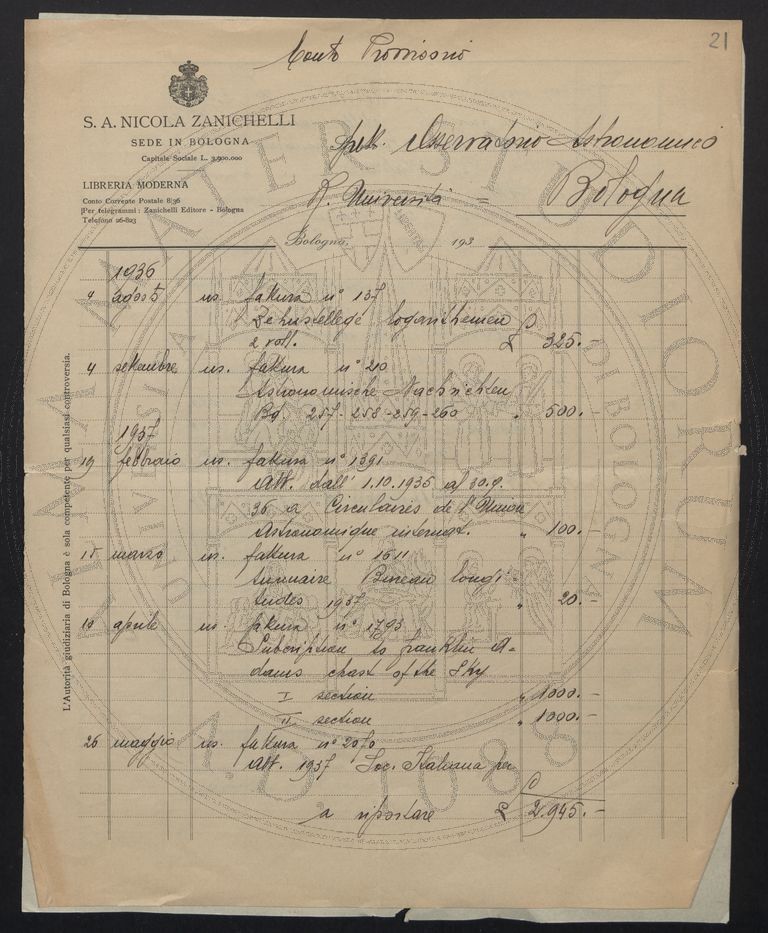 21
Conto Provvisorio
S. A. NICOLA ZANICHELLI
SEDE IN BOLOGNA
Capitale Sociale L. 3.900.000
LIBRERIA MODERNA
Conto Corrente Postale 8/36
Per telegrammi: Zanichelli Editore - Bologna
Telefono 26-823
Spett. Osservatorio Astronomico
R. Università = Bologna
Bologna, 193
1936
4 agosto ns. fattura n° 137
logarithmen
2 voll. £ 325.-
4 settembre ns. fattura n° 210
Astronomische Nachrichten
Bd. 257-258-259-260 " 500.-
1937
19 febbraio ns. fattura n° 1391
Abb. dall' 1.10.1935 al 30.9.
36 a Circulaires de l'Union
Astronomique internat. " 100.-
15 marzo ns. fattura n° 1611
Annuaire Bureau longi
tudes 1937 " 20.-
19 aprile ns. fattura n° 1793
Subscription to Franklin A-
dams chart of the Sky
I section " 1000.-
II section " 1000.-
26 maggio ns. fattura n° 2070
Abb. 1937 Soc. Italiana per
a riportare £ 2.945.-
L'Autorità giudiziaria di Bologna è sola competente per qualsiasi controversia.
ALMA MATER STUDIORUM
UNIVERSITÀ DI BOLOGNA
A.D. 1088